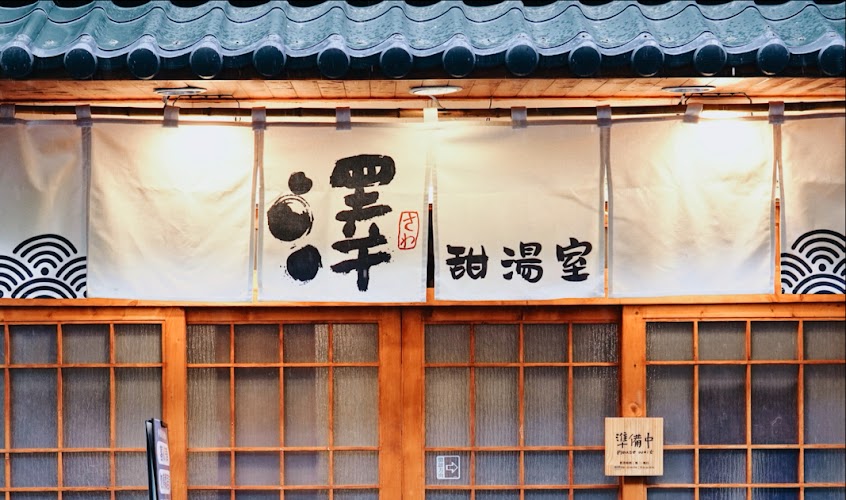 澤
さわ
甜湯室
準備中
PLEASE WAIT